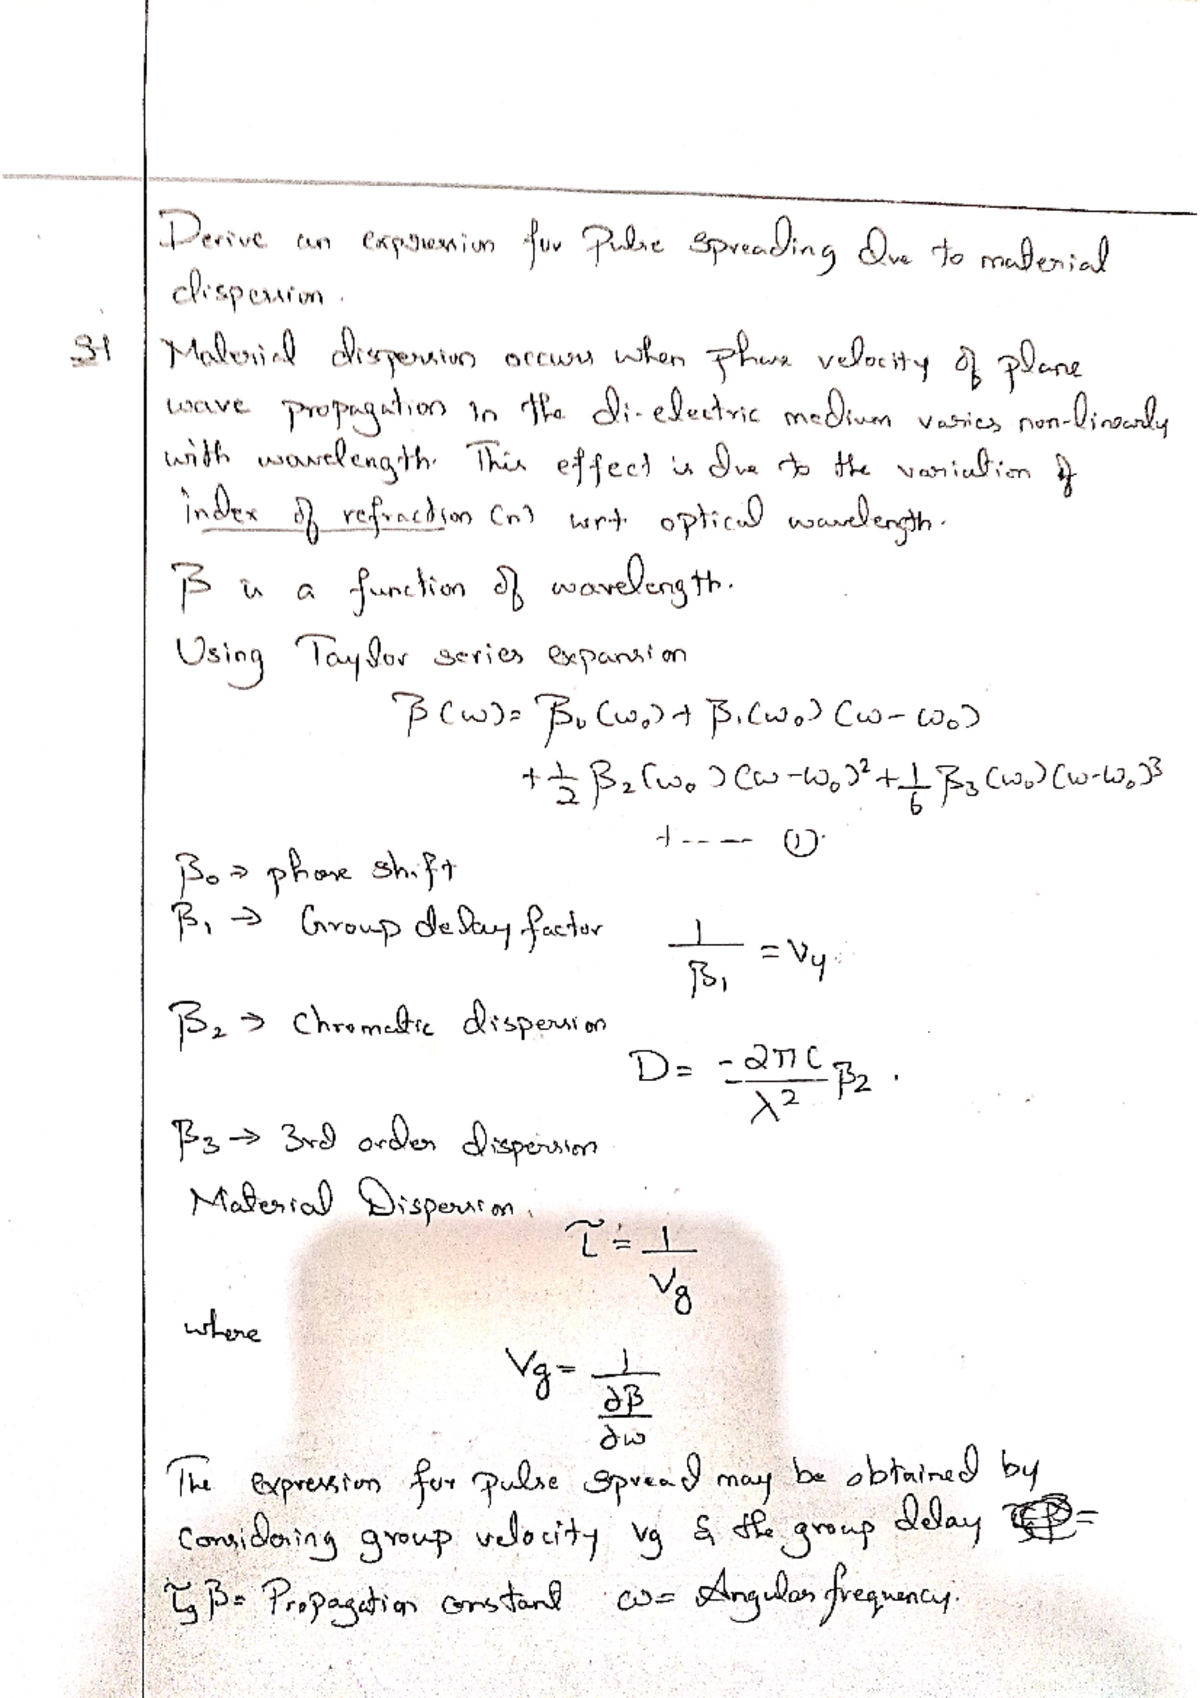 Derive an expression for Pulse Spreading Due to material
dispersion.
Material dispersion occurs when phase velocity of plane
wave propagation in the di-electric medium varies non-linearly
with wavelength. This effect is due to the variation of
index of refraction (n) wrt optical wavelength.
β is a function of wavelength.
Using Taylor series expansion
β(ω) = β₀(ω₀) + β₁(ω₀) (ω-ω₀)
+ 1/2 β₂(ω₀)(ω-ω₀)² + 1/6 β₃(ω₀)(ω-ω₀)³
+ ---- ①.
β₀ ⇒ phase shift
β₁ → Group delay factor 1/β₁ = Vg.
β₂ → Chromatic dispersion
D = -2πC/λ² β₂.
β₃ → 3rd order dispersion
Material Dispersion.
τ = 1/Vg
where
Vg = 1/(∂β/∂ω)
The expression for pulse spread may be obtained by
Considering group velocity vg & the group delay =
τg β = Propagation constant ω = Angular frequency.